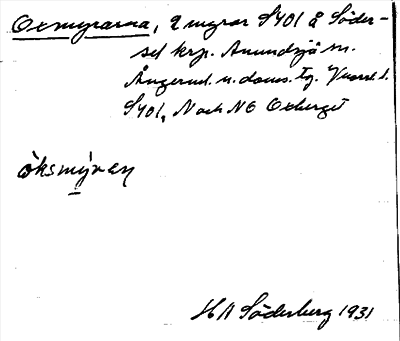 Oxmyrarna, 2 myrar S401 å Söder-
sel krp. Anundsjö sn.
Ångerml. n. doms. tg. 
S401, N och NO Oxberget
òksmýran
HA Söderberg 1931